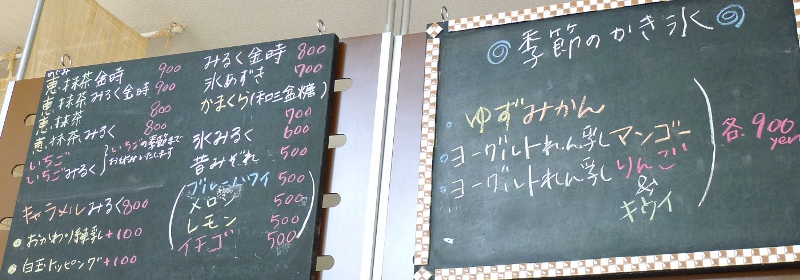 めぐみ
恵・抹茶金時 900
恵・抹茶みるく金時 900
恵・抹茶 800
恵・抹茶みるく 800
いちご
いちごみるく
いちごの季節まで
お休みいたします
キャラメルみるく 800
おかわり練乳 +100
白玉トッピング +100
みるく金時 800
氷あずき 700
かまくら(和三盆糖) 700
氷みるく 600
昔みぞれ 500
ブルーハワイ 500
メロン 500
レモン 500
イチゴ 500
季節のかき氷
ゆずみかん
ヨーグルトれん乳しマンゴー
ヨーグルトれん乳しりんご
&
キウイ
各900
yen